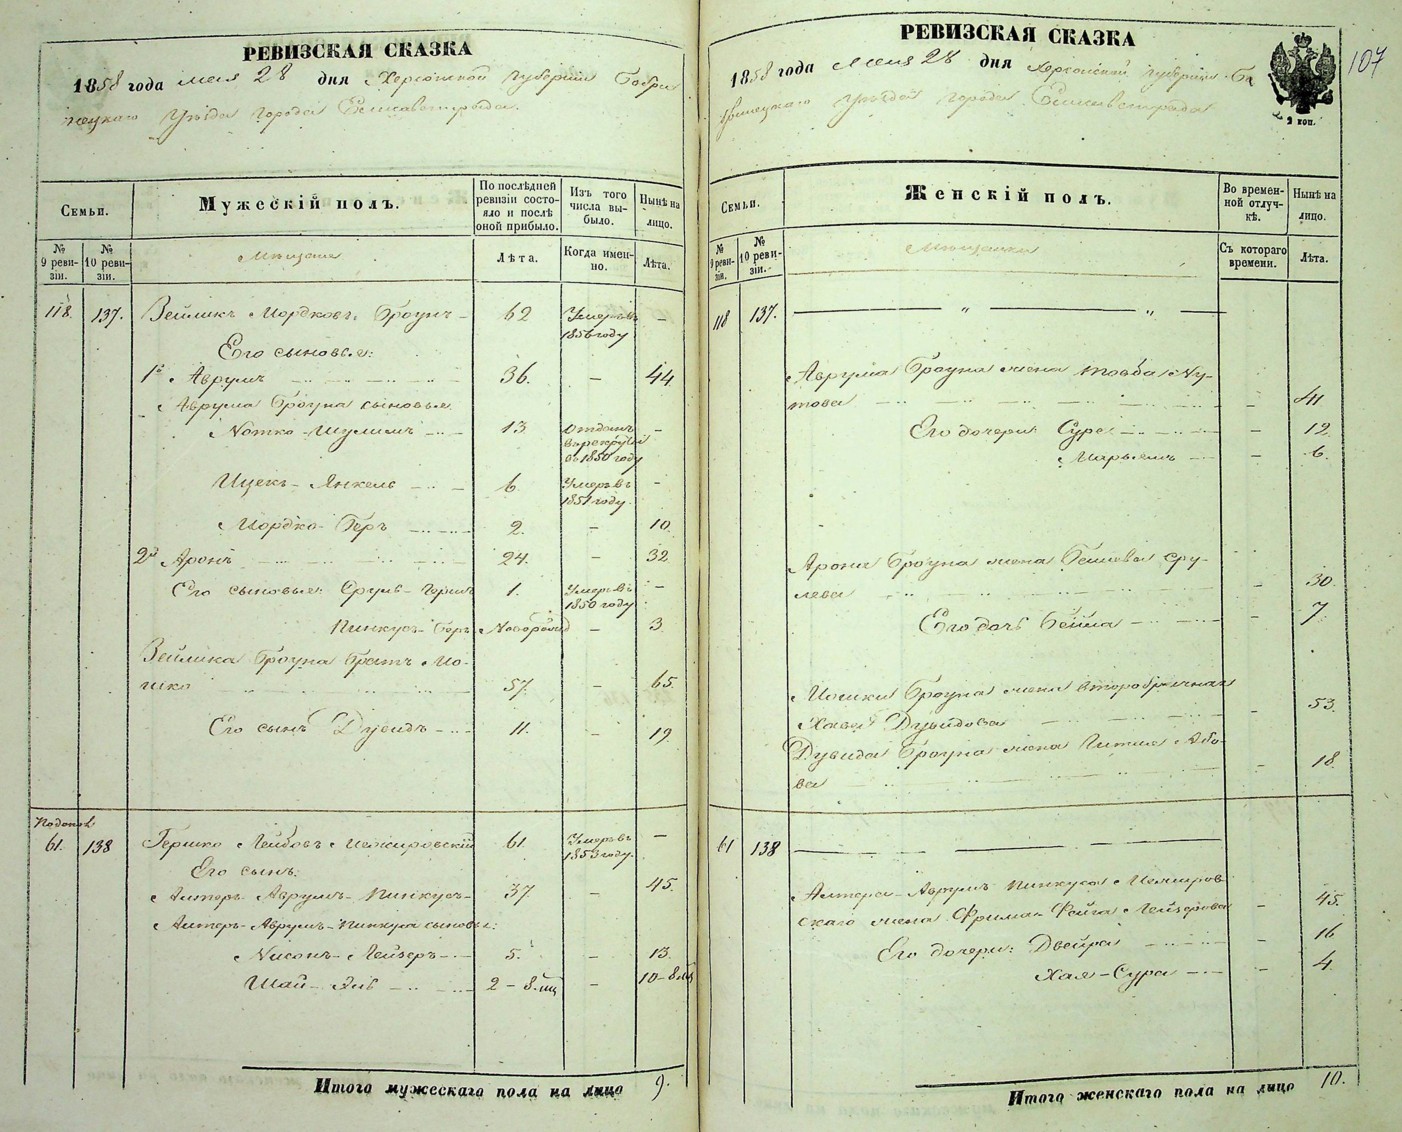 РЕВИЗСКАЯ СКАЗКА
1858 года мая 28 дня Херсонской губернии Бобри
нецкаго Уѣзда города Елисаветграда.
Семьи.
Мужескій полъ.
По послѣдней ревизіи состояло и послѣ оной прибыло.
Изъ того числа выбыло.
Нынѣ на лицо.
№ 9 ревизіи.
№ 10 ревизіи.
Мѣщане
Лѣта.
Когда именно.
Лѣта.
118. 137. Вейликъ Мордковъ Броунъ 62 Умеръ въ 1856 году —
Его сыновья:
1й Аврумъ 36. — 44
Аврума Броуна сыновья
Нотко-Шулимъ 13 Отданъ в рекруты въ 1850 году —
Ицекъ-Янкель 6. Умеръ въ 1851 году —
Мордко-Беръ 2. — 10
2й Аронъ 24. — 32
Его сыновья: Сруль- 1. Умеръ въ 1850 году —
Пинкусъ-Беръ Новорожд — 3.
Вейлика Броуна братъ Мо-
шко 57. — 65.
Его сынъ Дувидъ 11. — 19.
61. 138 Гершко Лейбовъ Немировскій 61. Умеръ въ 1853 году. —
Его сынъ:
Алтеръ-Аврумъ-Пинкусъ 37 — 45.
Алтеръ-Аврумъ-Пинкуса сыновья:
Нисонъ-Лейзеръ 5. — 13.
Шай-Эль 2 - 8.мц — 10-8.мц
Итого мужескаго пола на лицо 9.
РЕВИЗСКАЯ СКАЗКА
1858 года Мая 28 дня Херсонской губернии Бо
бринецкаго Уѣзда города Елисаветграда
2 коп.
107
Семьи.
Женскій полъ.
Во временной отлучкѣ.
Нынѣ на лицо.
№ 9 ревизіи.
№ 10 ревизіи.
Мѣщанки
Съ котораго времени.
Лѣта.
118 137. — " — " —
Аврума Броуна жена Товба Ну-
това — 41
Его дочери: Сура — 12
Марьемъ — 6.
Арона Броуна жена Башева Сру-
лева — 30
Его дочь Бейла — 7
Мошки Броуна жена второбрачная
Хава Дувидова — 53.
Дувида Броуна жена Гитля Або-
ва — 18
61 138 —
Алтера-Аврумъ Пинкуса Немиров-
скаго жена Фрима-Фейга Лейзерова — 45.
Его дочери: Двейра — 16
Хая-Сура — 4.
Итого женскаго пола на лицо 10.